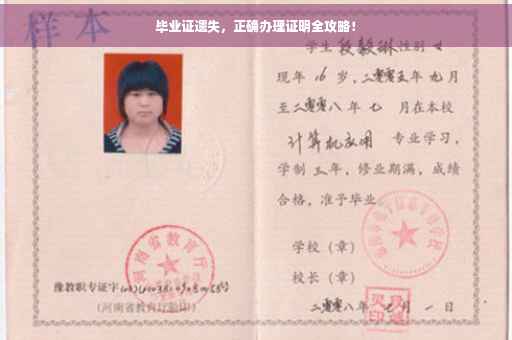 毕业证遗失，正确办理证明全攻略！
样本
学生段毅琳性别女
现年16岁，二零零五年九月
至二零零八年七月在本校
计算机应用 专业学习，
学制三年，修业期满，成绩
合格，准予毕业。
学校（章）
校长（章）
二零零八年七月一日
河南省教育厅
豫教职专证字
（河南省教育厅验印）